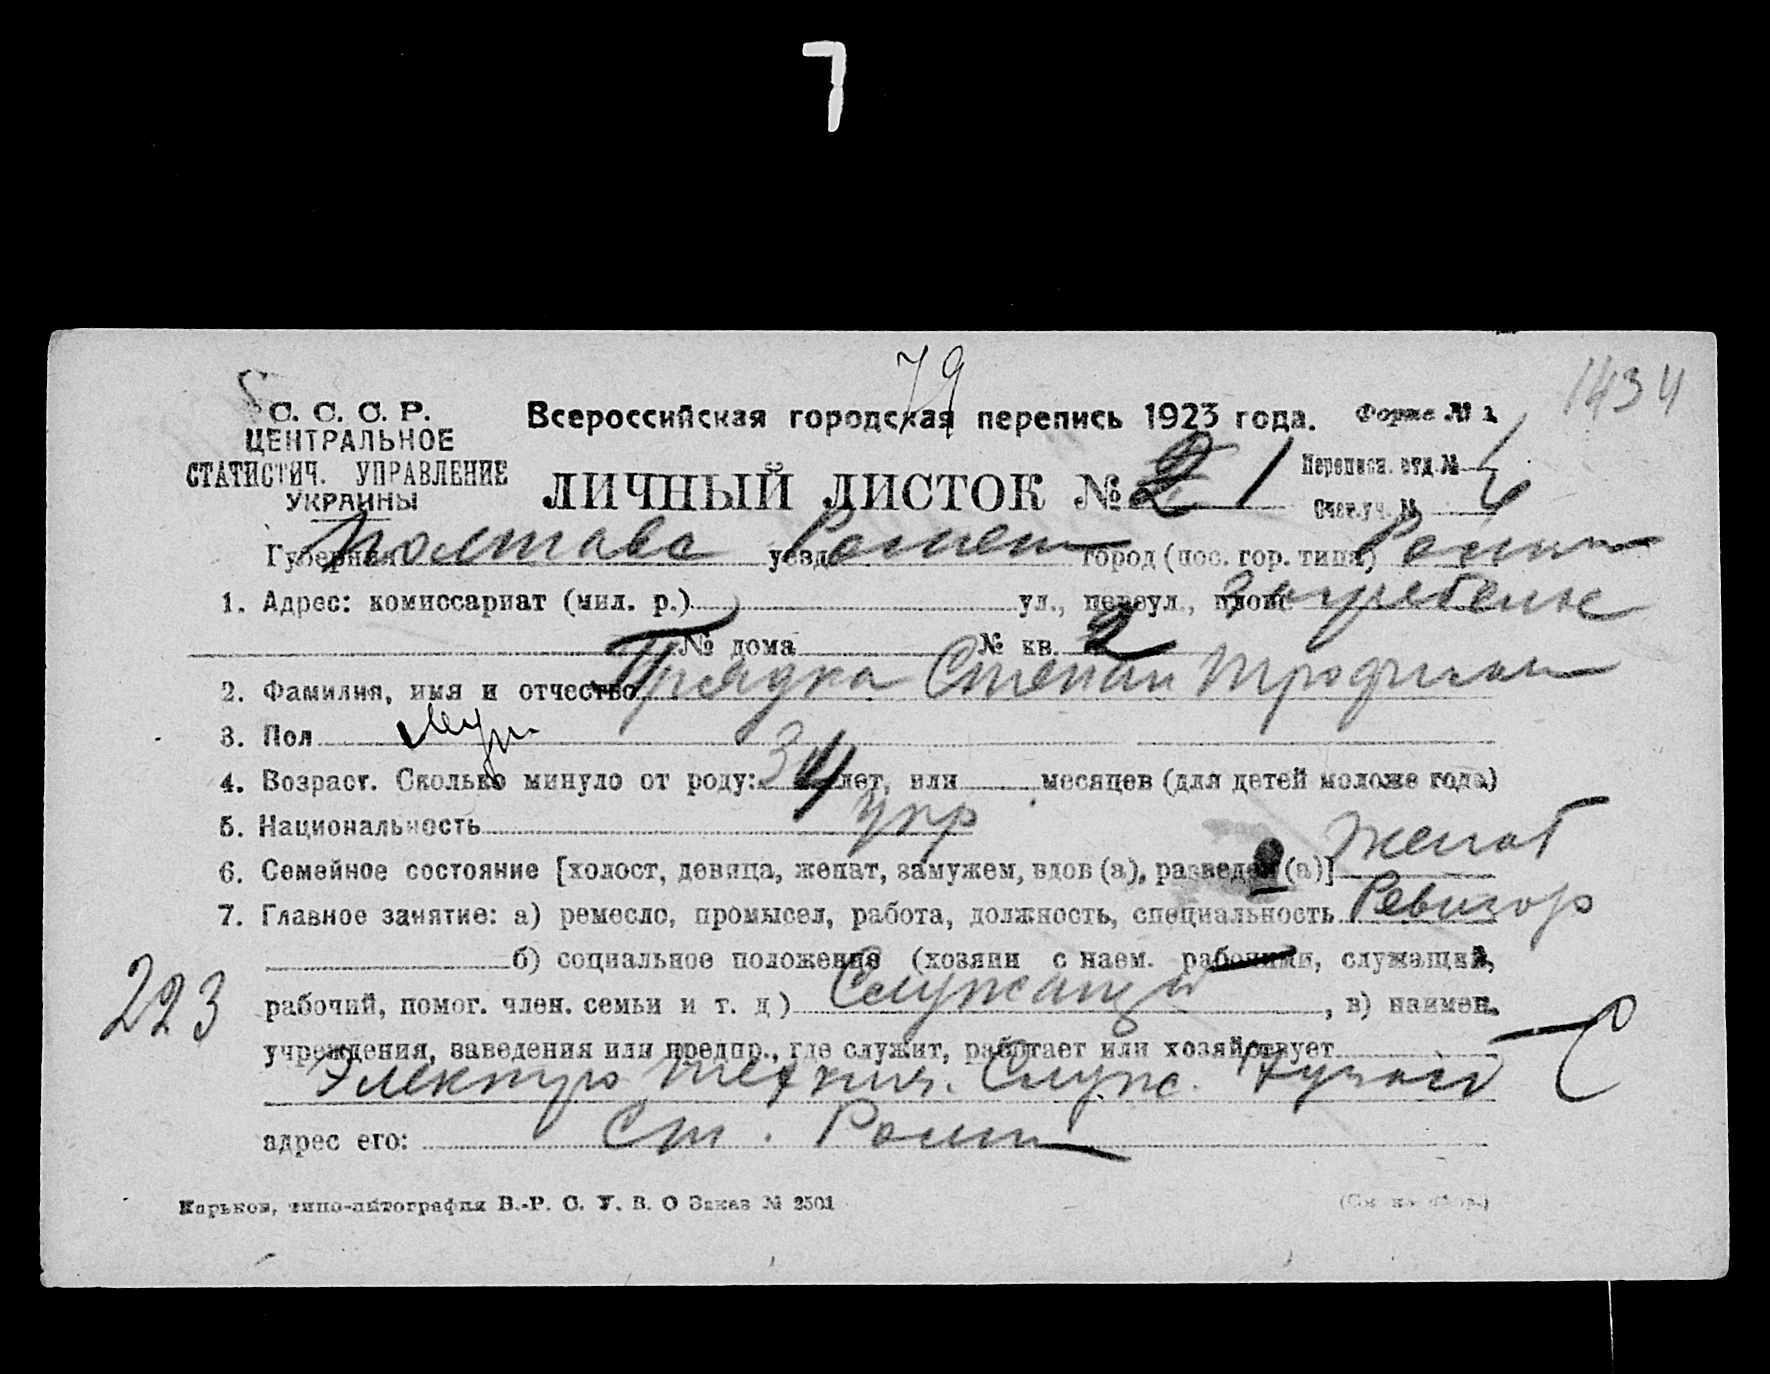 7
79
1434
С. С. С. Р.
ЦЕНТРАЛЬНОЕ
СТАТИСТИЧ. УПРАВЛЕНИЕ
УКРАИНЫ
Всероссийская городская перепись 1923 года. Форма № 1
ЛИЧНЫЙ ЛИСТОК № 1
Переписн. отд. №
Счет. уч. №
Губерния Полтава уезд Ромен город (пос. гор. типа) Ромны
1. Адрес: комиссариат (мил. р.) ул., переул., площ.
№ дома № кв. 2
2. Фамилия, имя и отчество Прядка Степан Трофимов
3. Пол муж
4. Возраст. Сколько минуло от роду: 34 лет, или месяцев (для детей моложе года)
5. Национальность укр
6. Семейное состояние [холост, девица, женат, замужем, вдов (а), разведен (а)] женат
7. Главное занятие: а) ремесло, промысел, работа, должность, специальность Ревизор
б) социальное положение (хозяин с наем. рабочими, служащий,
223
рабочий, помог. член. семьи и т. д) Служащий , в) наимен.
учреждения, заведения или предпр., где служит, работает или хозяйствует
Электро технич. Служ.
адрес его: Ст. Ромны
Харьков, типо-литография В.-Р. С. У. В. О Заказ № 2501
(См. на обор.)